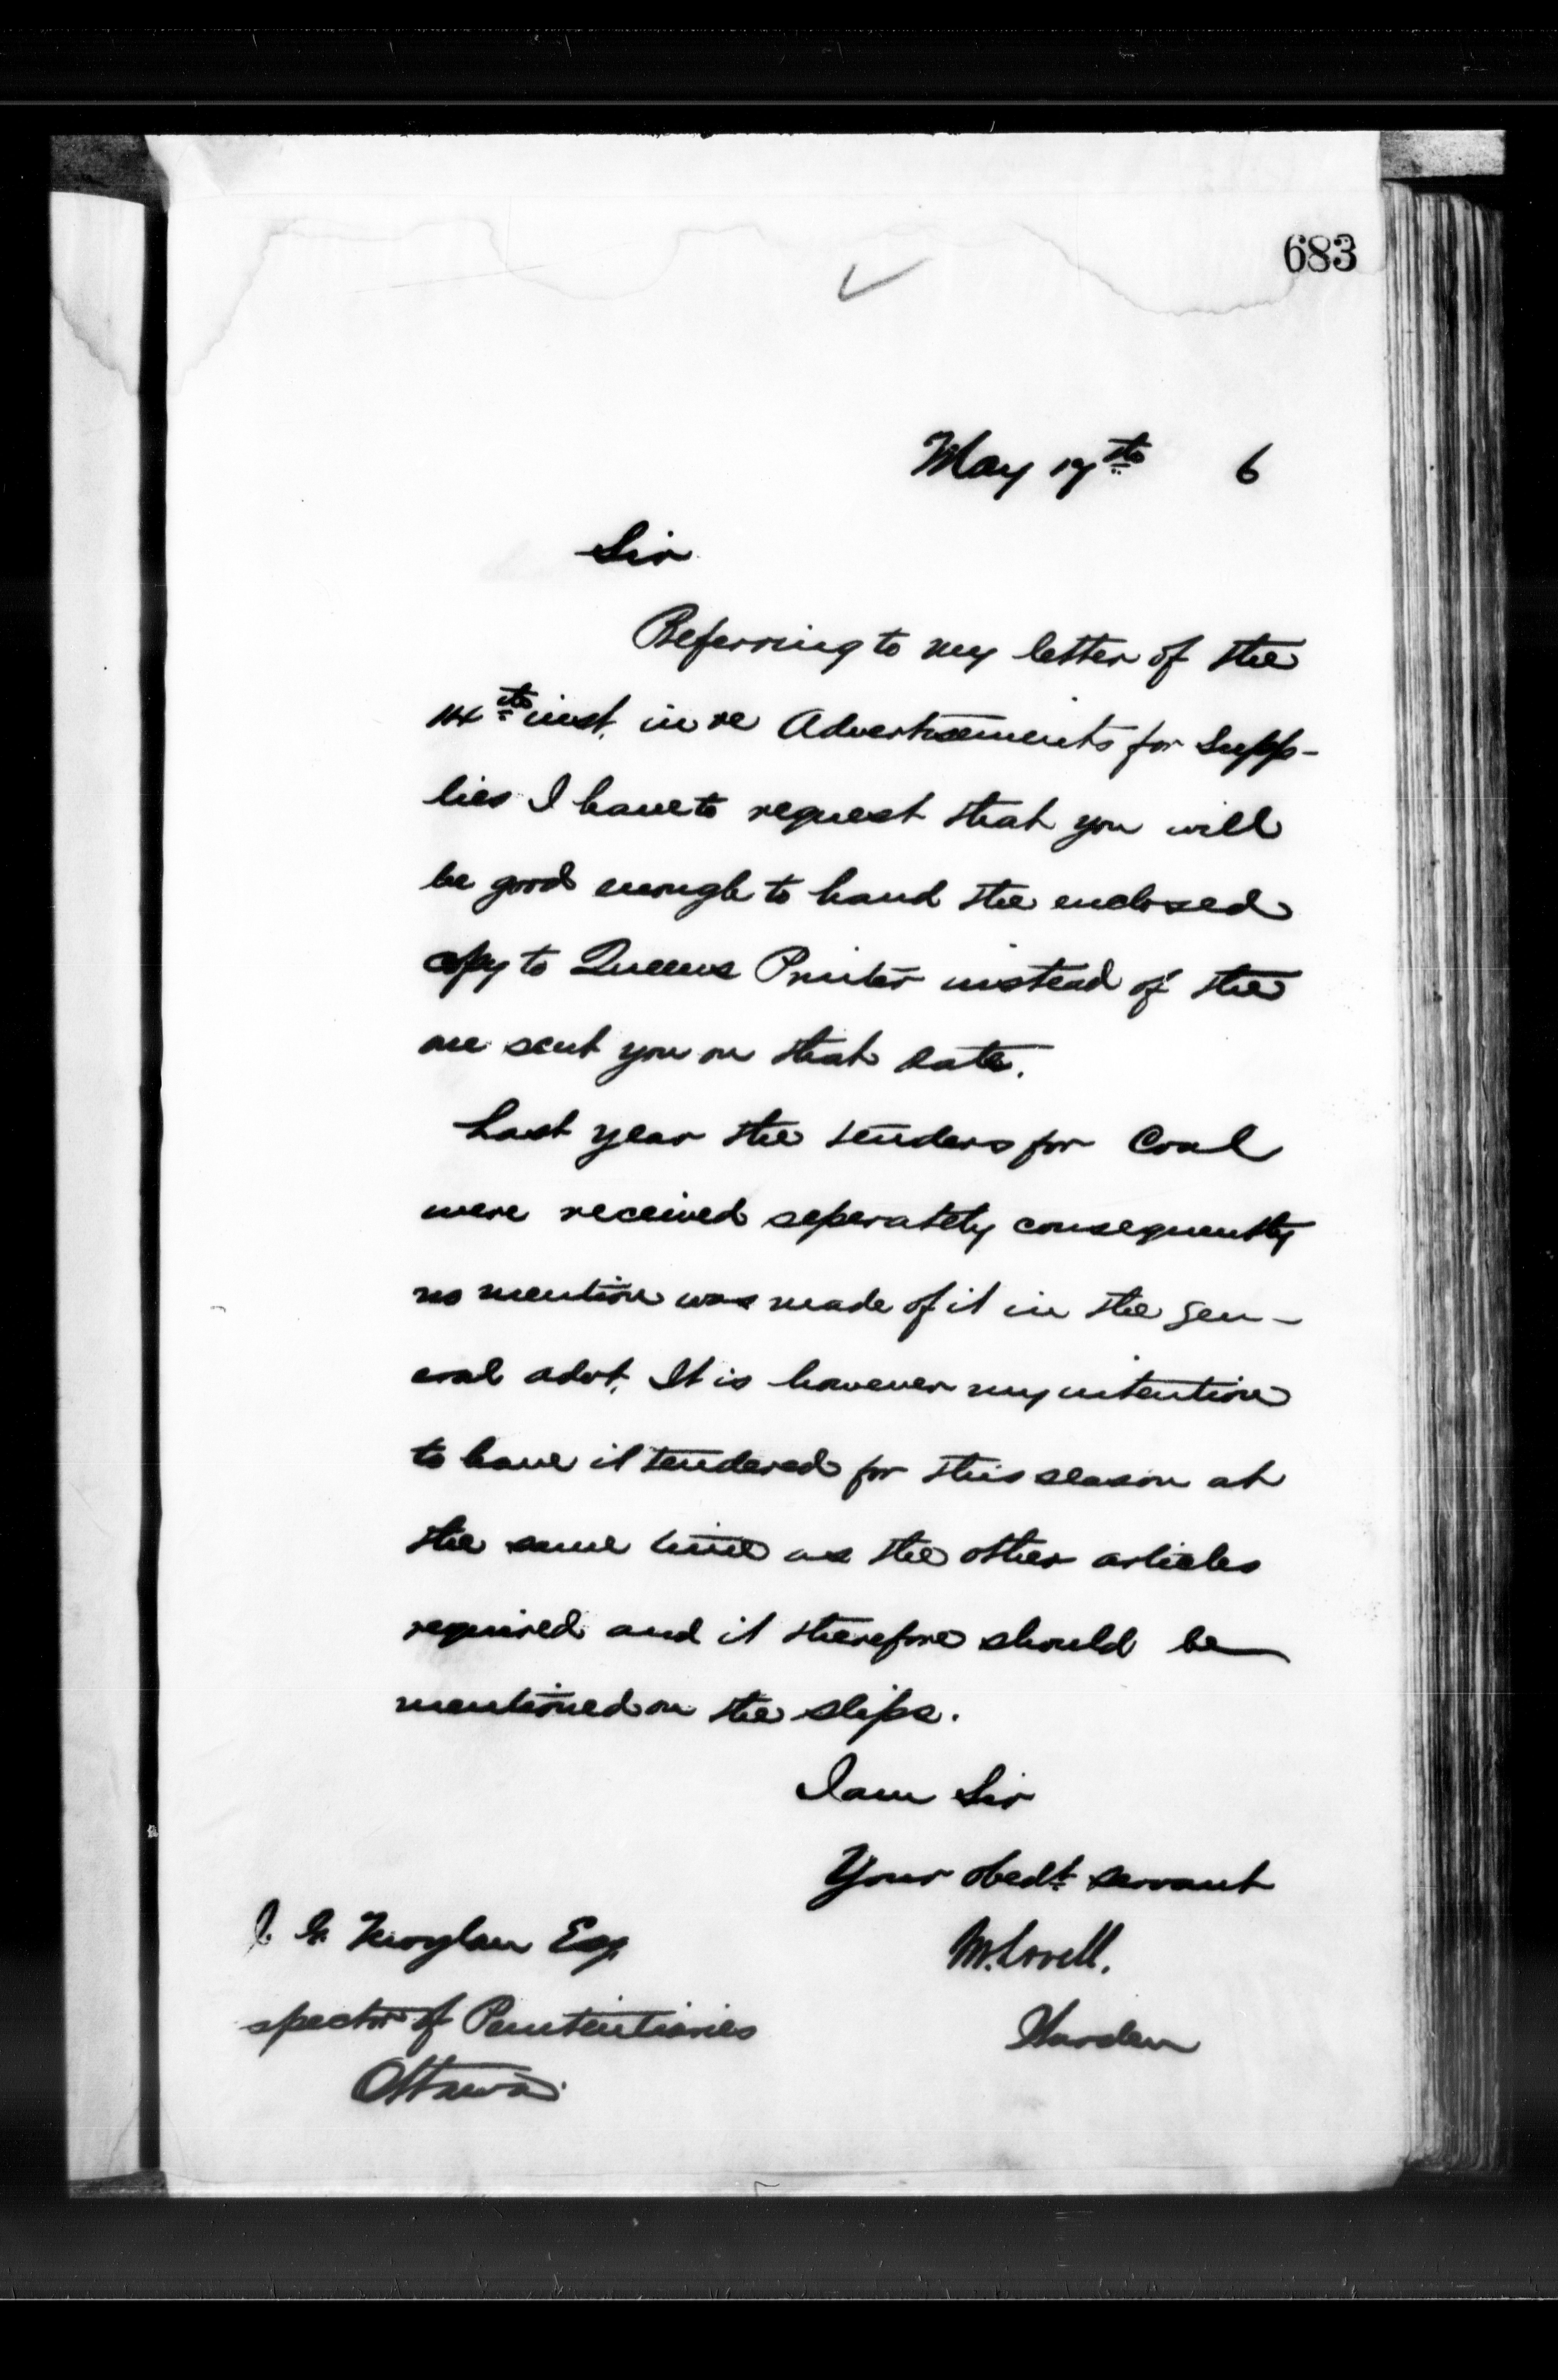 683
May 17th 6
Sir
Referring to my letter of the
14th inst. in re Advertisements for Supp-
lies I have to request that you will
be good enough to hand the enclosed
copy to Queens Printer instead of the
one sent you on that date.
Last year the tenders for Coal
were received seperately consequently
no mention was made of it in the gen-
eral advt. It is however my intention
to have it tendered for this season at
the same time as the other articles
required and it therefore should be
mentioned on the slips.
I am Sir
Your obedt servant
J. G. Moylan Esq
M. Lovell.
spector of Penitentiaries
Warden
Ottawa.